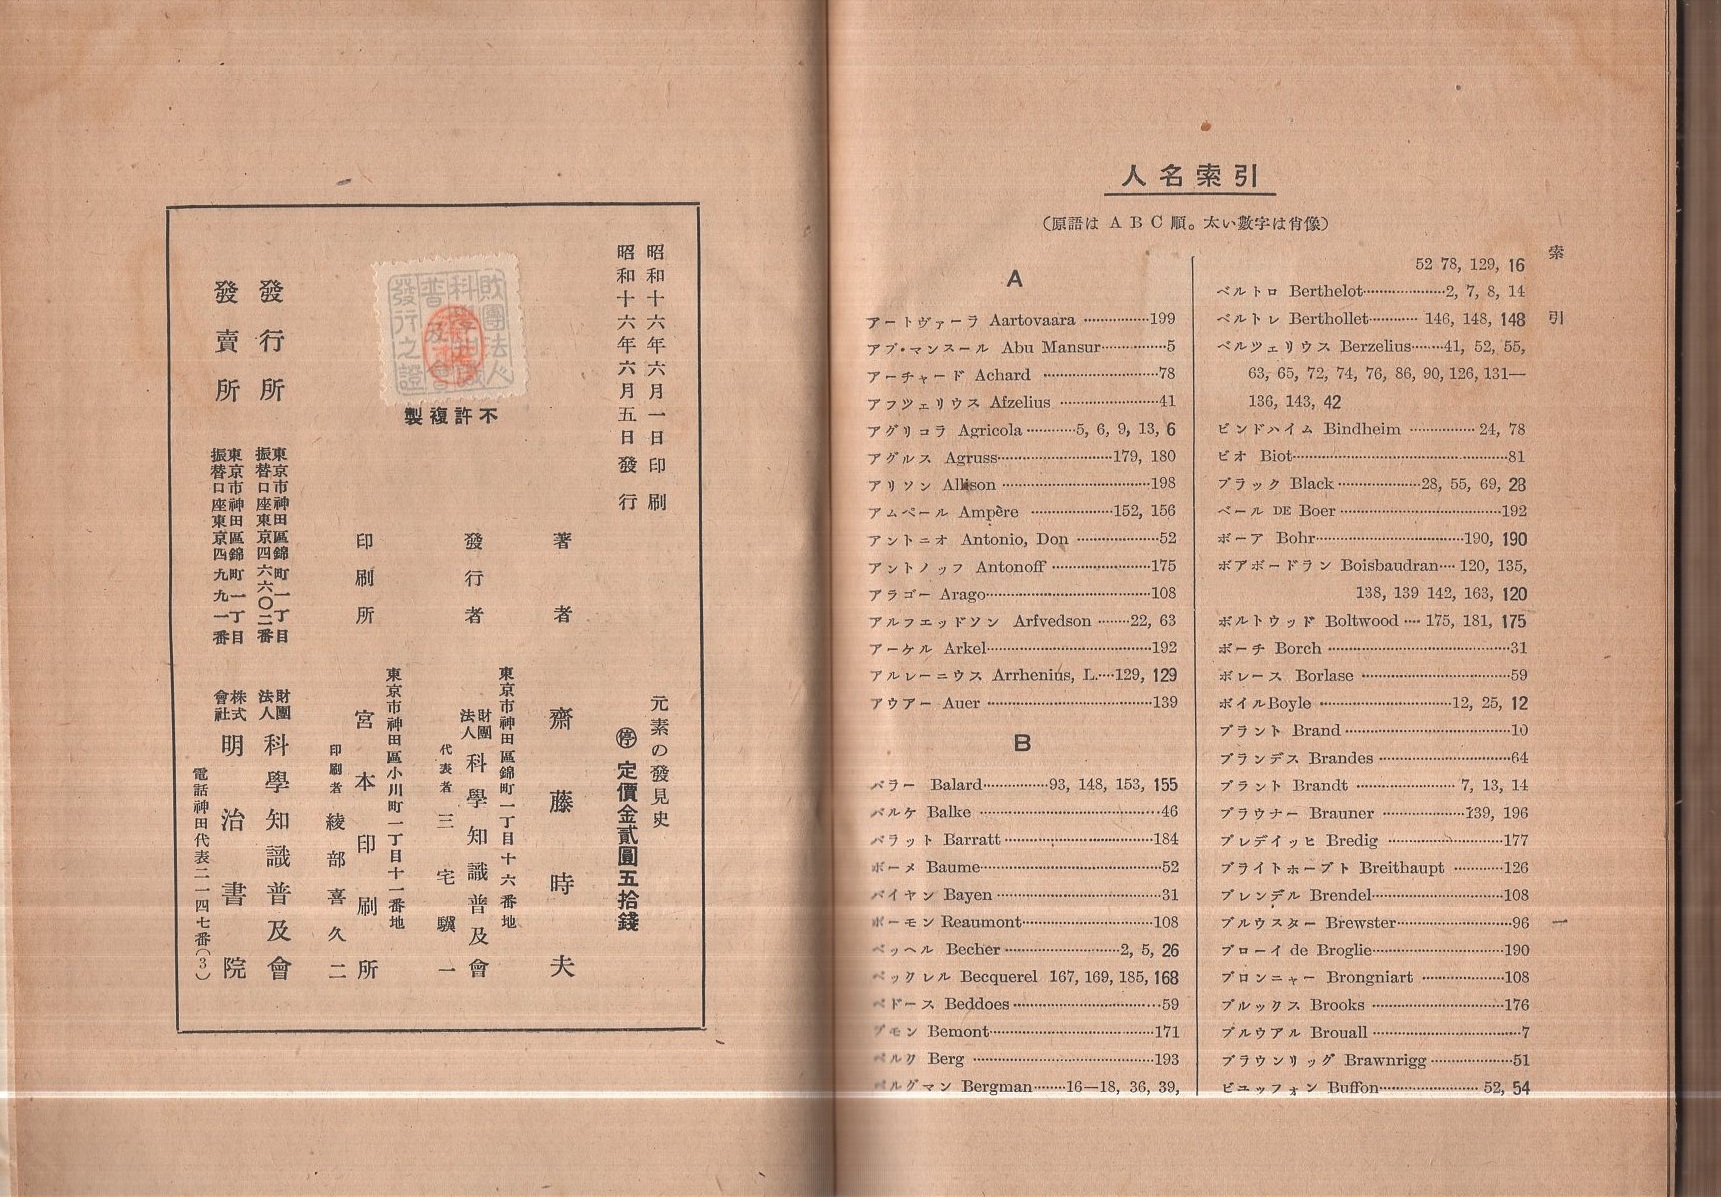 昭和十六年六月一日印刷
昭和十六年六月五日發行
元素の發見史
㊡定價金貳圓五拾錢
財團法人
科學知識
普及會
發行之證
不許複製
著者 齋藤時夫
東京市神田區錦町一丁目十六番地
發行者 財團法人 科學知識普及會
代表者 三宅驥一
東京市神田區小川町一丁目十一番地
印刷所 宮本印刷所
印刷者 綾部喜久二
發行所 東京市神田區錦町一丁目 振替口座東京四六六〇二番 財團法人 科學知識普及會
發賣所 東京市神田區錦町一丁目 振替口座東京四九九一番 株式會社 明治書院
電話神田代表二一四七番(3)
人名索引
(原語は A B C 順。太い數字は肖像)
A
アートヴァーラ Aartovaara ……………199
アブ・マンスール Abu Mansur……………5
アーチャード Achard ……………78
アフツェリウス Afzelius ……………41
アグリコラ Agricola…………5, 6, 9, 13, 6
アグルス Agruss……………179, 180
アリソン Allison ……………198
アムペール Ampère ……………152, 156
アントニオ Antonio, Don ……………52
アントノッフ Antonoff ……………175
アラゴー Arago……………108
アルフェッドソン Arfvedson ………22, 63
アーケル Arkel……………192
アルレーニウス Arrhenius, L.…129, 129
アウアー Auer ……………139
B
バラー Balard……………93, 148, 153, 155
バルケ Balke ……………46
バラット Barratt……………184
ボーメ Baume……………52
バイヤン Bayen ……………31
ボーモン Reaumont……………108
ベッヘル Becher……………2, 5, 26
ベックレル Becquerel 167, 169, 185, 168
ベドース Beddoes……………59
ブモン Bemont……………171
ベルク Berg ……………193
ベルグマン Bergman………16—18, 36, 39,
52 78, 129, 16
ベルトロ Berthelot……………2, 7, 8, 14
ベルトレ Berthollet………… 146, 148, 148
ベルツェリウス Berzelius………41, 52, 55,
63, 65, 72, 74, 76, 86, 90, 126, 131—
136, 143, 42
ビンドハイム Bindheim …………… 24, 78
ビオ Biot……………81
ブラック Black……………28, 55, 69, 28
ベール DE Boer……………192
ボーア Bohr……………190, 190
ボアボードラン Boisbaudran…… 120, 135,
138, 139 142, 163, 120
ボルトウッド Boltwood …… 175, 181, 175
ボーチ Borch ……………31
ボレース Borlase ……………59
ボイルBoyle ……………12, 25, 12
ブラント Brand……………10
ブランデス Brandes……………64
ブラント Brandt …………… 7, 13, 14
ブラウナー Brauner……………139, 196
ブレデイッヒ Bredig ……………177
ブライトホープト Breithaupt …………126
ブレンデル Brendel……………108
ブルウスター Brewster……………96
ブローイ de Broglie……………190
ブロンニャー Brongniart ……………108
ブルックス Brooks ……………176
ブルウアル Brouall……………7
ブラウンリッグ Brawnrigg……………51
ビュッフォン Buffon…………… 52, 54
索引
一